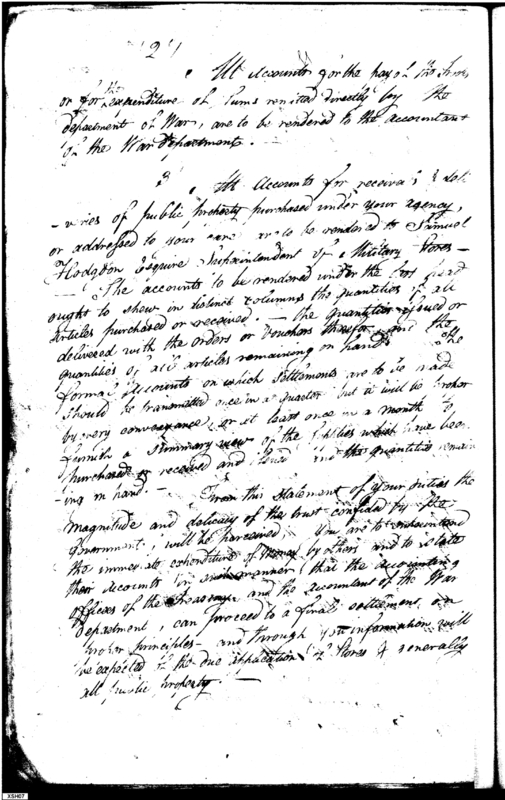 2d
All Accounts for the pay of the Army
or for the expenditure of Sums remitted directly by the
department of War, are to be rendered to the Accountant
of the War department. —
3d All Accounts for receivals & deli-
-veries of public property purchased under your agency,
or addressed to your care are to be rendered to Samuel
Hodgdon Esquire Superintendent of Military Stores —
— The accounts to be rendered under the last head
ought to shew in distinct columns the quantities of all
articles purchased or received. — the quantities issued or
delivered with the orders or vouchers therefor, and the
quantities of all articles remaining on hand. The
formal Accounts on which settlements are to be made
should be transmitted once in a quarter but it will be proper
by every conveyance, or at least once in a month to
furnish a summary view of the supplies which have been
purchased or received and issued and the quantities remain
-ing on hand. —
From this statement of your duties the
magnitude and delicacy of the trust confided by the
Government, will be perceived. You are to
the immediate expenditure of Money by others and to state
their Accounts in such manner, that the accounting
officers of the Treasury and the accountant of the War
department, can proceed to a final settlement on
proper principles — and through your information will
be expected of the due application of Stores & generally
all public property. —
XSH07